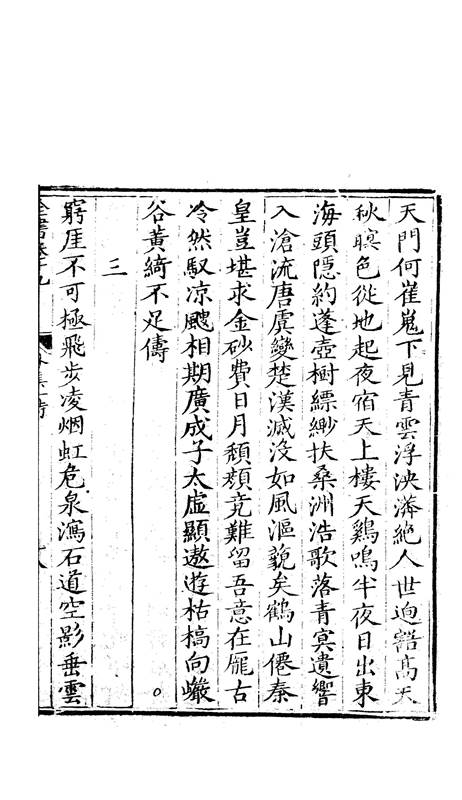 天門何崔嵬下見青雲浮泱漭絶人世迥豁髙天
秋暝色從地起夜宿天上樓天鷄鳴半夜日出東
海頭隱約蓬壺樹縹緲扶桑洲浩歌落青㝠遺響
入滄流唐虞變楚漢滅没如風漚藐矣鶴山僊秦
皇豈堪求金砂費日月頽顔竟難留吾意在厖古
冷然馭凉颷相期廣成子太虛顯遨遊枯槁向巖
谷黄綺不足儔
三
窮厓不可極飛步凌烟虹危泉瀉石道空影垂雲